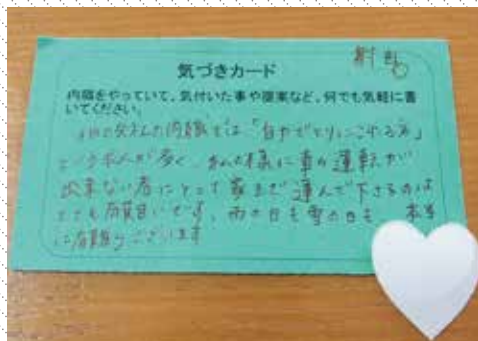 気づきカード
内職をやっていて、気付いた事や提案など、何でも気軽に書
いてください。
内職では「自分でとりにこれる方」
という求人が多く、私の様に車の運転が
出来ない者にとって家まで運んで下さるのは
とても有難いです。雨の日も雪の日も、本当
に有難うございます